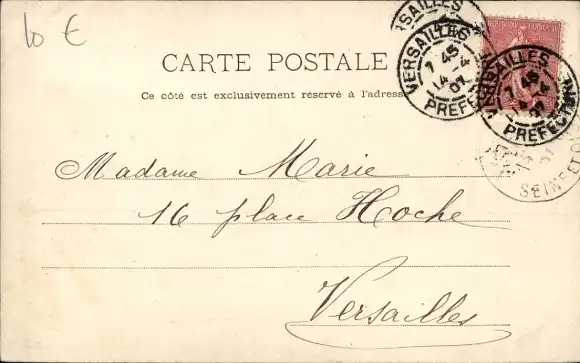 10 €
CARTE POSTALE
Ce côté est exclusivement réservé à l'adresse
VERSAILLES
VERSAILLES
7 45
14 4
07
PREFECTURE
VERSAILLES
7 45
14 4
07
PREFECTURE
SEINE ET O
Madame Marie
16 place Hoche
Versailles